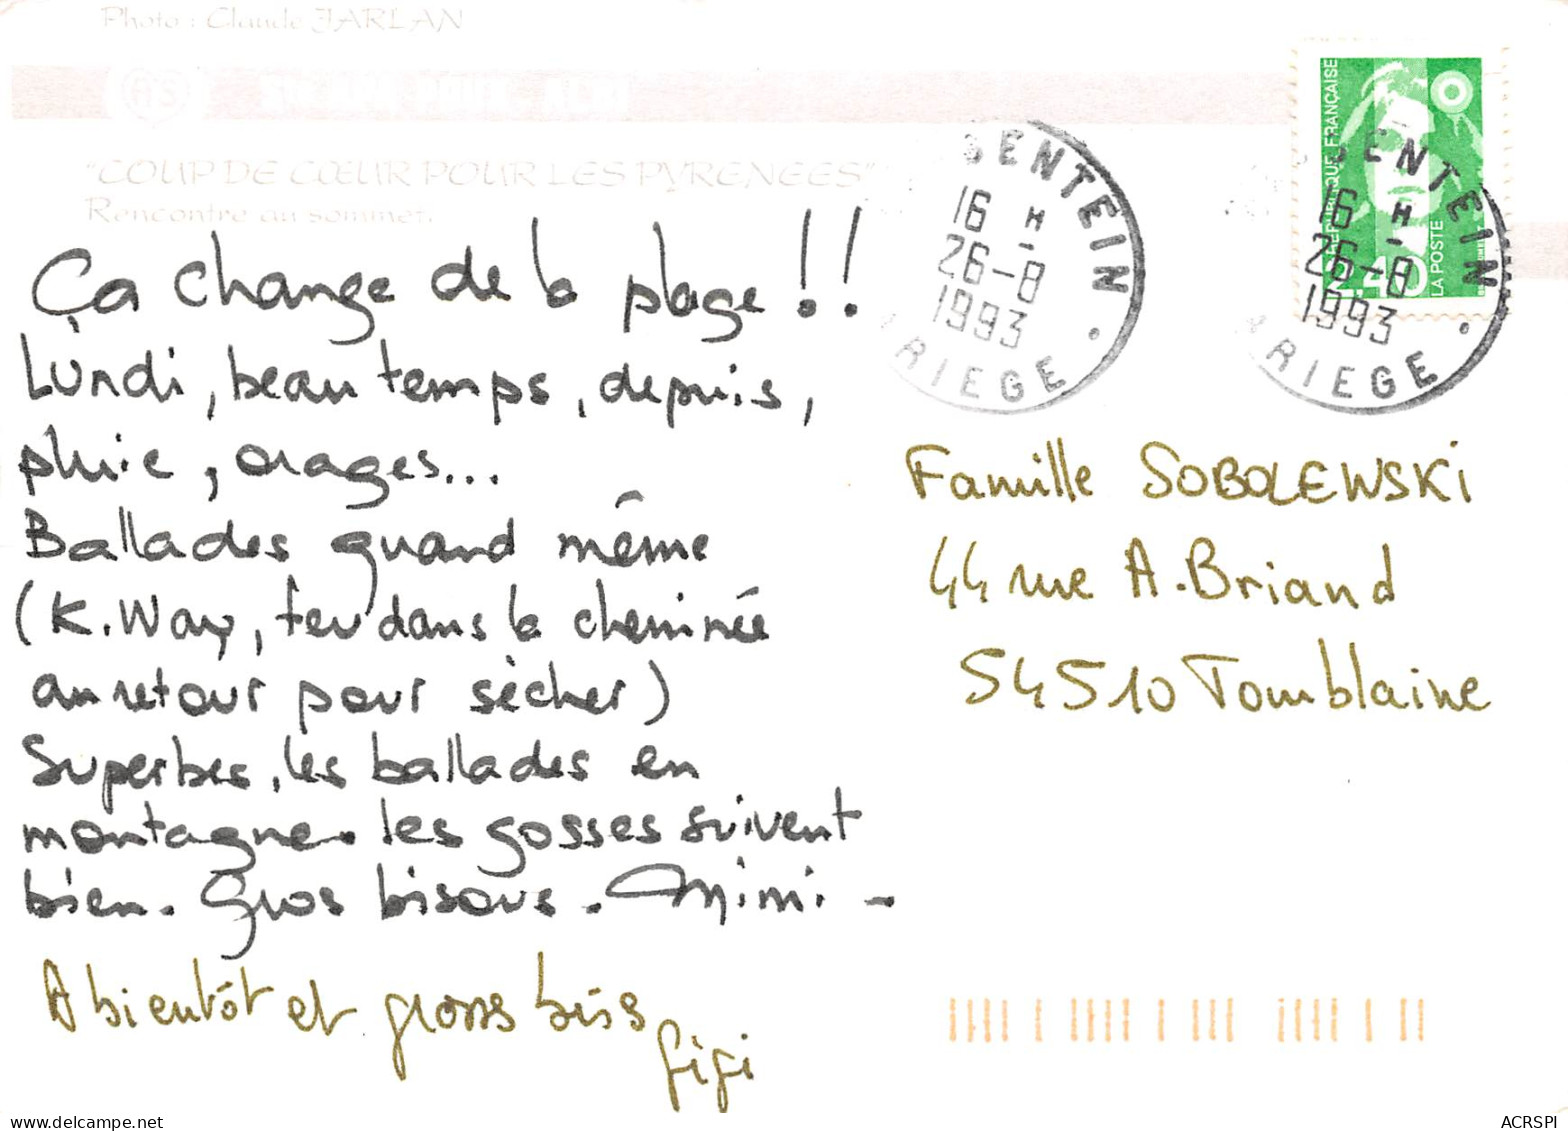 Photo : Claude JARLAN
"COUP DE CŒUR POUR LES PYRENEES"
Rencontre au sommet.
SENTEIN
16 H
26-8
1993
ARIEGE
REPUBLIQUE FRANÇAISE
2,40
LA POSTE
SENTEIN
16 H
26-8
1993
ARIEGE
Ça change de la plage !!
Lundi, beau temps, depuis,
pluie, orages...
Ballades quand même
(K.Way, feu dans la cheminée
au retour pour sècher)
Superbes, les ballades en
montagne. les gosses suivent
bien. Gros bisous. Mimi -
A bientôt et gross biss
Gigi
Famille SOBOLEWSKI
44 rue A.Briand
54510 Tomblaine
ACRSPI